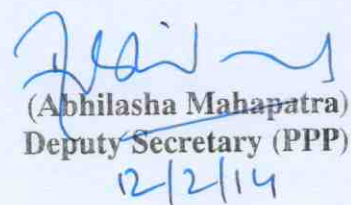 (Abhilasha Mahapatra)
Deputy Secretary (PPP)
12/2/14